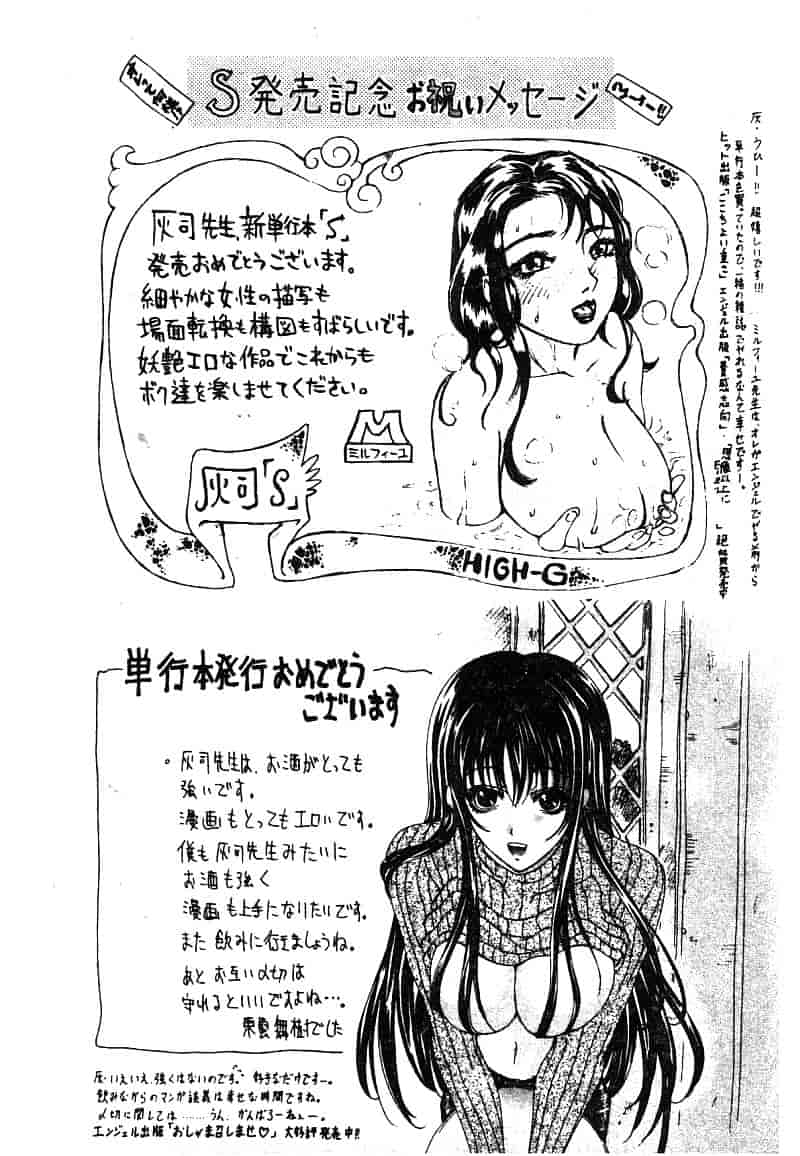 S発売記念お祝いメッセージ
灰司先生、新単行本「S」
発売おめでとうございます。
細やかな女性の描写も
場面転換も構図もすばらしいです。
妖艶エロな作品でこれからも
ボク達を楽しませてください。
M
ミルフィーユ
灰司「S」
HIGH-G
灰・うひー!! 超嬉しいです!!!
ミルフィーユ先生は、オレがエンジェルでやる前から
単行本も買っていたので、一緒の雑誌でやれるなんて幸せですー。
ヒット出版「ここちよい重さ」エンジェル出版「質感志向」
超絶賛発売中
単行本発行おめでとう
ございます
。灰司先生は、お酒がとっても
強いです。
漫画もとってもエロいです。
僕も灰司先生みたいに
お酒も強く
漫画も上手になりたいです。
また飲みに行きましょうね。
あとお互い〆切は
守れるといいですよね…。
東鷹舞樹でした
灰・いえいえ、強くはないのです。好きなだけですー。
飲みながらのマンガ談義は幸せな時間ですね。
〆切に関しては………うん、がんばろーねぇー。
エンジェル出版「おしゃま召しませ♡」大好評発売中!!